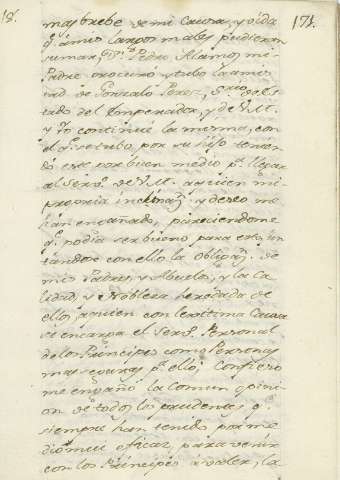 18.
171.
mas brebe de mi Causa, y oida
q.e a mis largos males pudieron
sumar, q.e Dn. Pedro Alamos mi
Padre procuró, y tubo la amis
tad de Gonzalo Perez, S.rio de Es
tado del Emperador, y de V.M.
y Yo continúe la misma, con
el q.e estubo por su hijo tenien
do este por buen medio p.a llegar
al Serv.o de V.M. a quien mi
propria inclinaz.n y deseo me
han engañado, pareciendome
q.e podia ser bueno para esto jun
tandose con ello la Obligaz.n de
mis Padres, y Abuelos, y la Ca
lidad, y Nobleza heredada de
ellos, a quien con lexitima Causa
se encarga el Serv.o Personal
de los Principes como Personas
mas seguras p.a ello. Confieso
me engañó la Comun opini
on de todos los prudentes, q.e
siempre han tenido por me
dio mui eficaz, para venir
con los Principes à valer, la